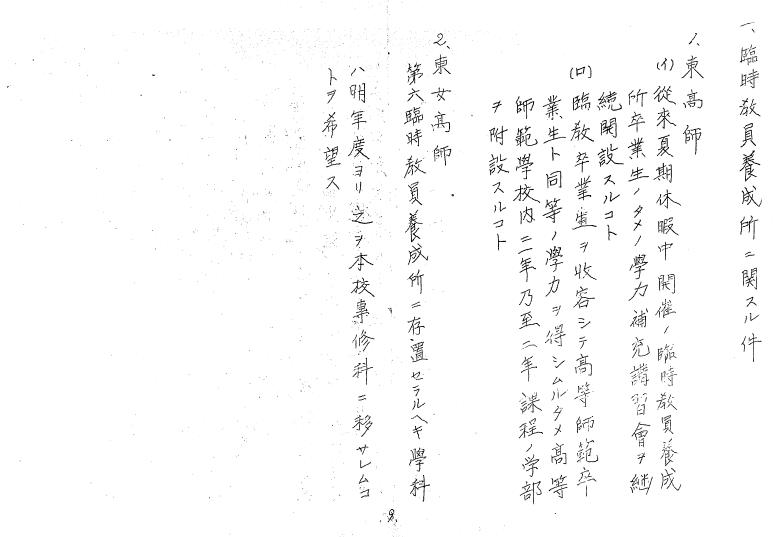 一、臨時教員養成所ニ関スル件
1、東高師
(イ)從来夏期休暇中開催ノ臨時教員養成
所卒業生ノタメノ學力補充講習會ヲ継
続開設スルコト
(ロ)臨教卒業生ヲ收容シテ高等師範卒
業生ト同等ノ學力ヲ得シムルタメ高等
師範學校内ニ一年乃至二年課程ノ学部
ヲ附設スルコト
2、東女高師
第六臨時教員養成所ニ存置セラルヘキ學科
ハ明年度ヨリ之ヲ本校專修科ニ移サレムコ
トヲ希望ス